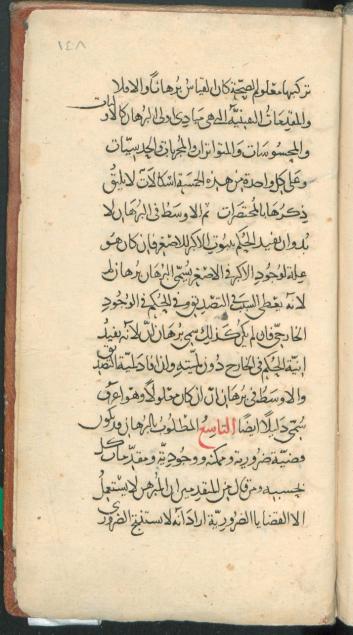 ١٤٨
تركيبها معلوم الصحة كان القياس برهانا والا فلا
والمقدمات اليقينية التي هي مبادى اولى للبرهان كالاوليات
والمحسوسات والمتواترات والمجربات والحدسيات
وعلى كل واحدة من هذه الخمسة اشكالات لا يليق
ذكرها بالمختصرات ثم الاوسط في البرهان لا
بد وان يفيد الحكم بثبوت الاكبر للاصغر فان كان هو
علة لوجود الاكبر في الاصغر يسمى البرهان برهان لم
لانه يعطى السبب في التصديق وفي الحكم في الوجود
الخارجي فان لم يكن كذلك سمى برهان ان لانه يفيد
انية الحكم في الخارج دون لميته وان افاد لمية التصديق
والاوسط في برهان ان ان كان معلولا وهو اعرف
سمى دليلا ايضا التاسع المطلوب بالبرهان قد يكون
قضية ضرورية وممكنة ووجودية ومقدمات كل
بحسبه ومن قال من المتقدمين ان المبرهن لا يستعمل
الا القضايا الضرورية اراد انه لا يستنتج الضروري